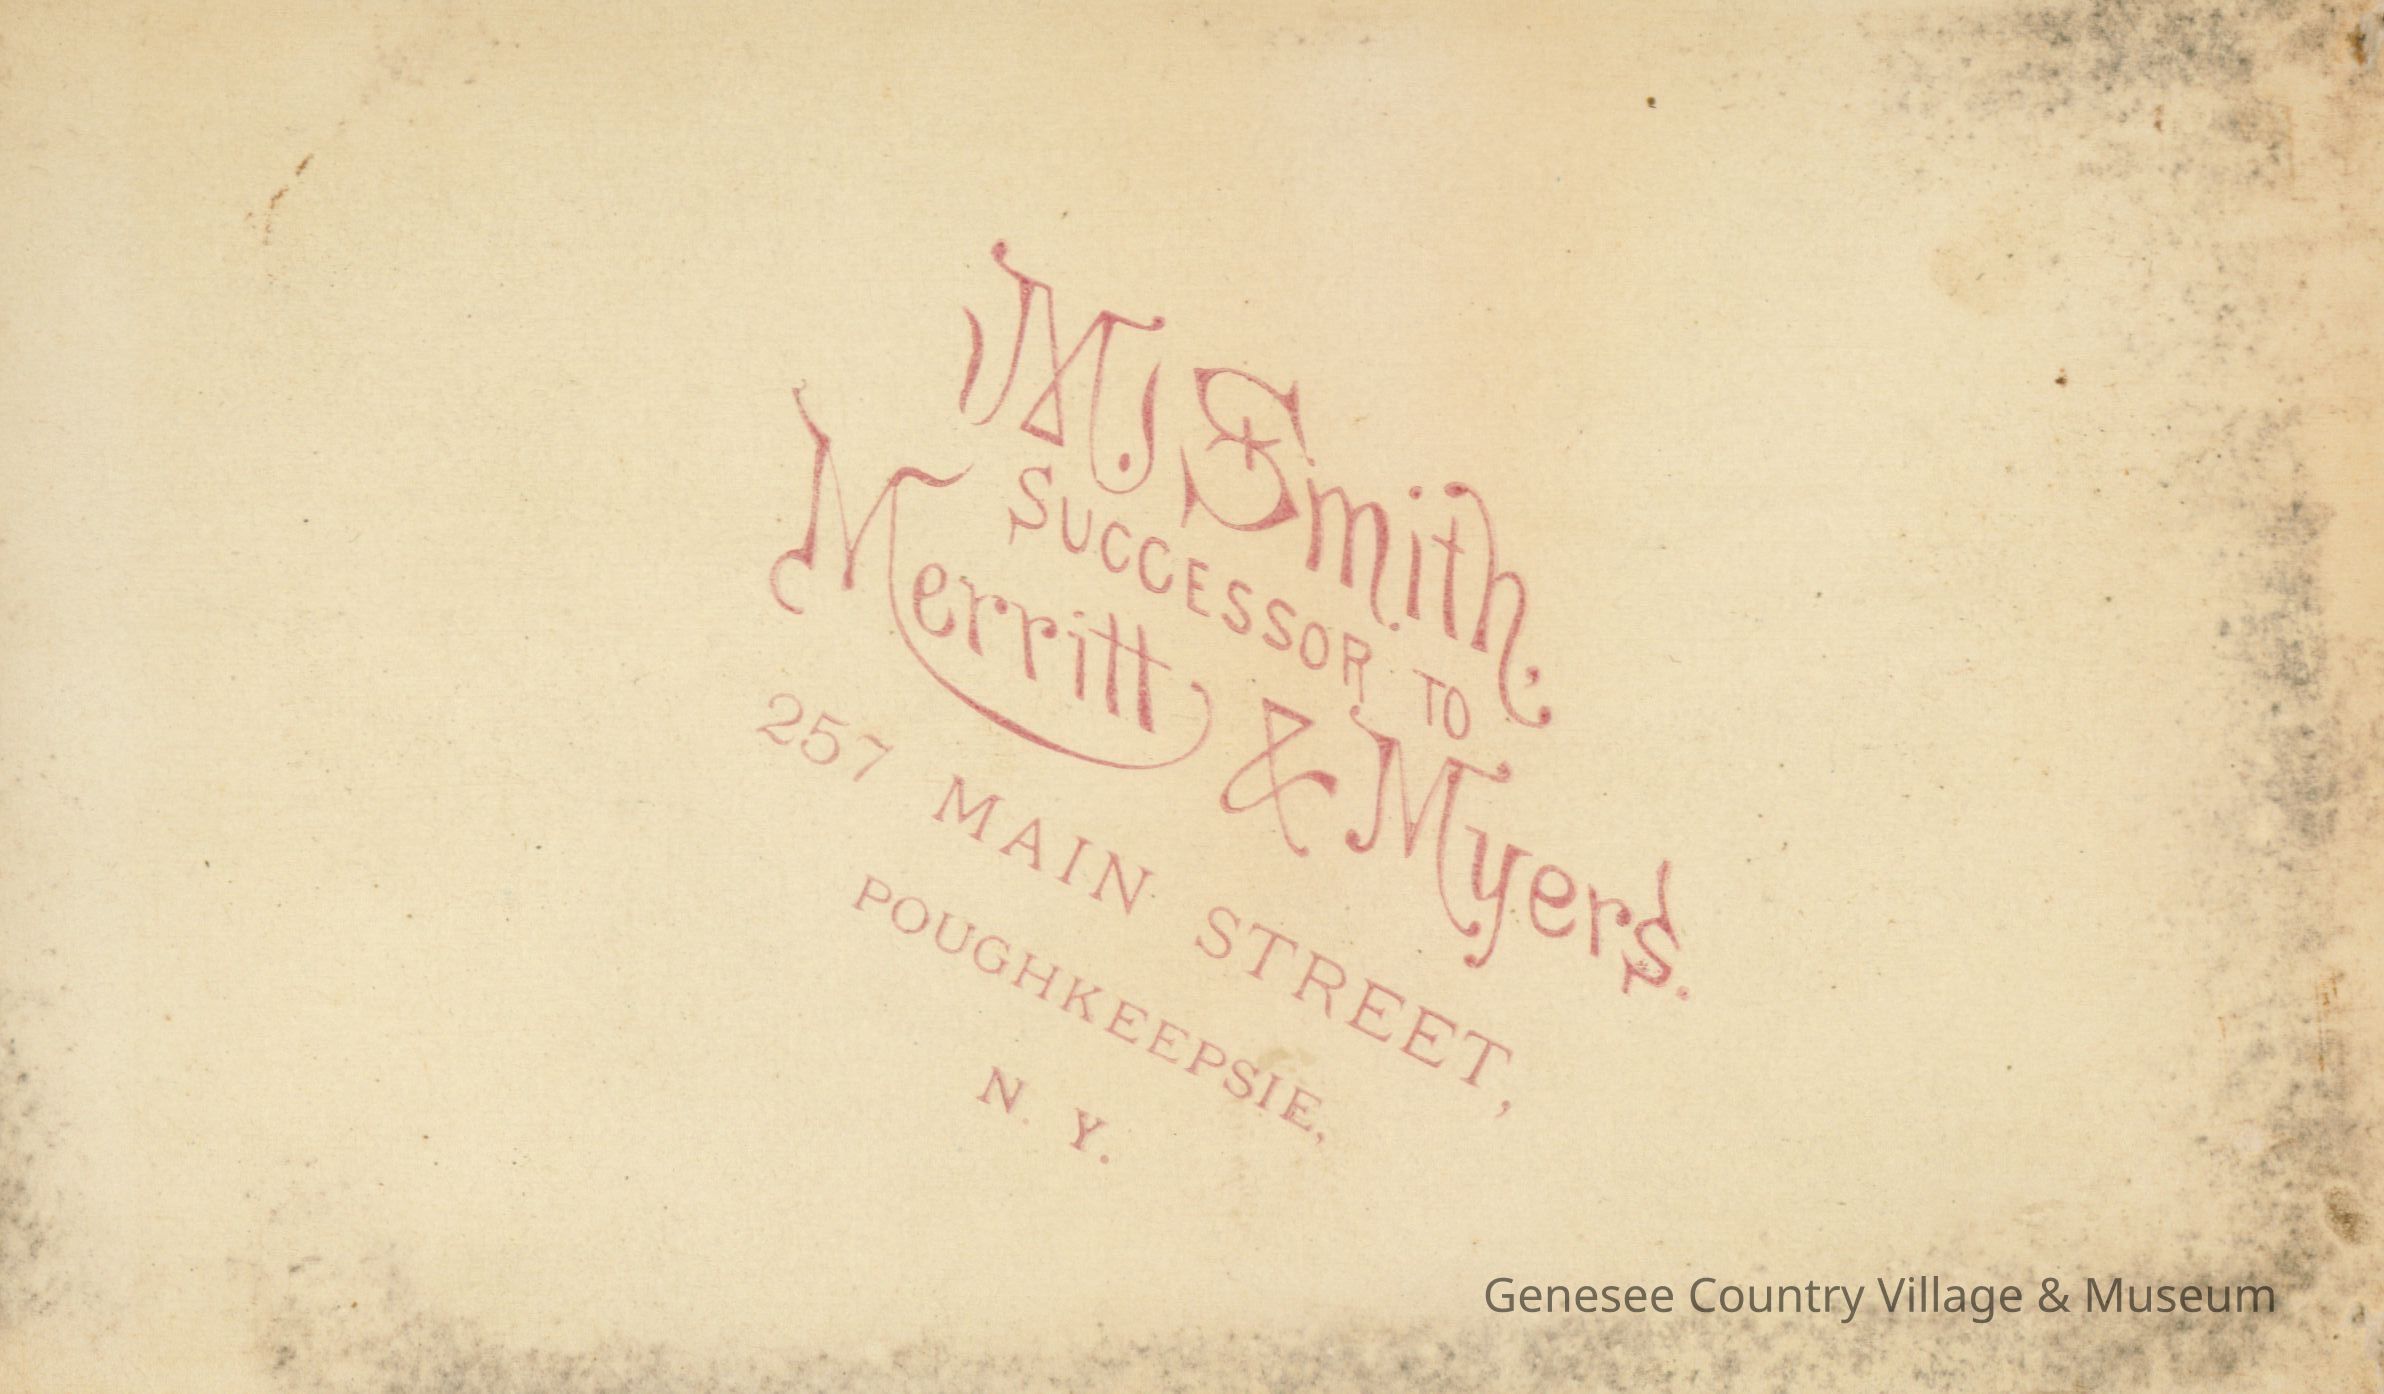 M. Smith.
SUCCESSOR TO
Merritt & Myers.
257 MAIN STREET,
POUGHKEEPSIE,
N. Y.
Genesee Country Village & Museum